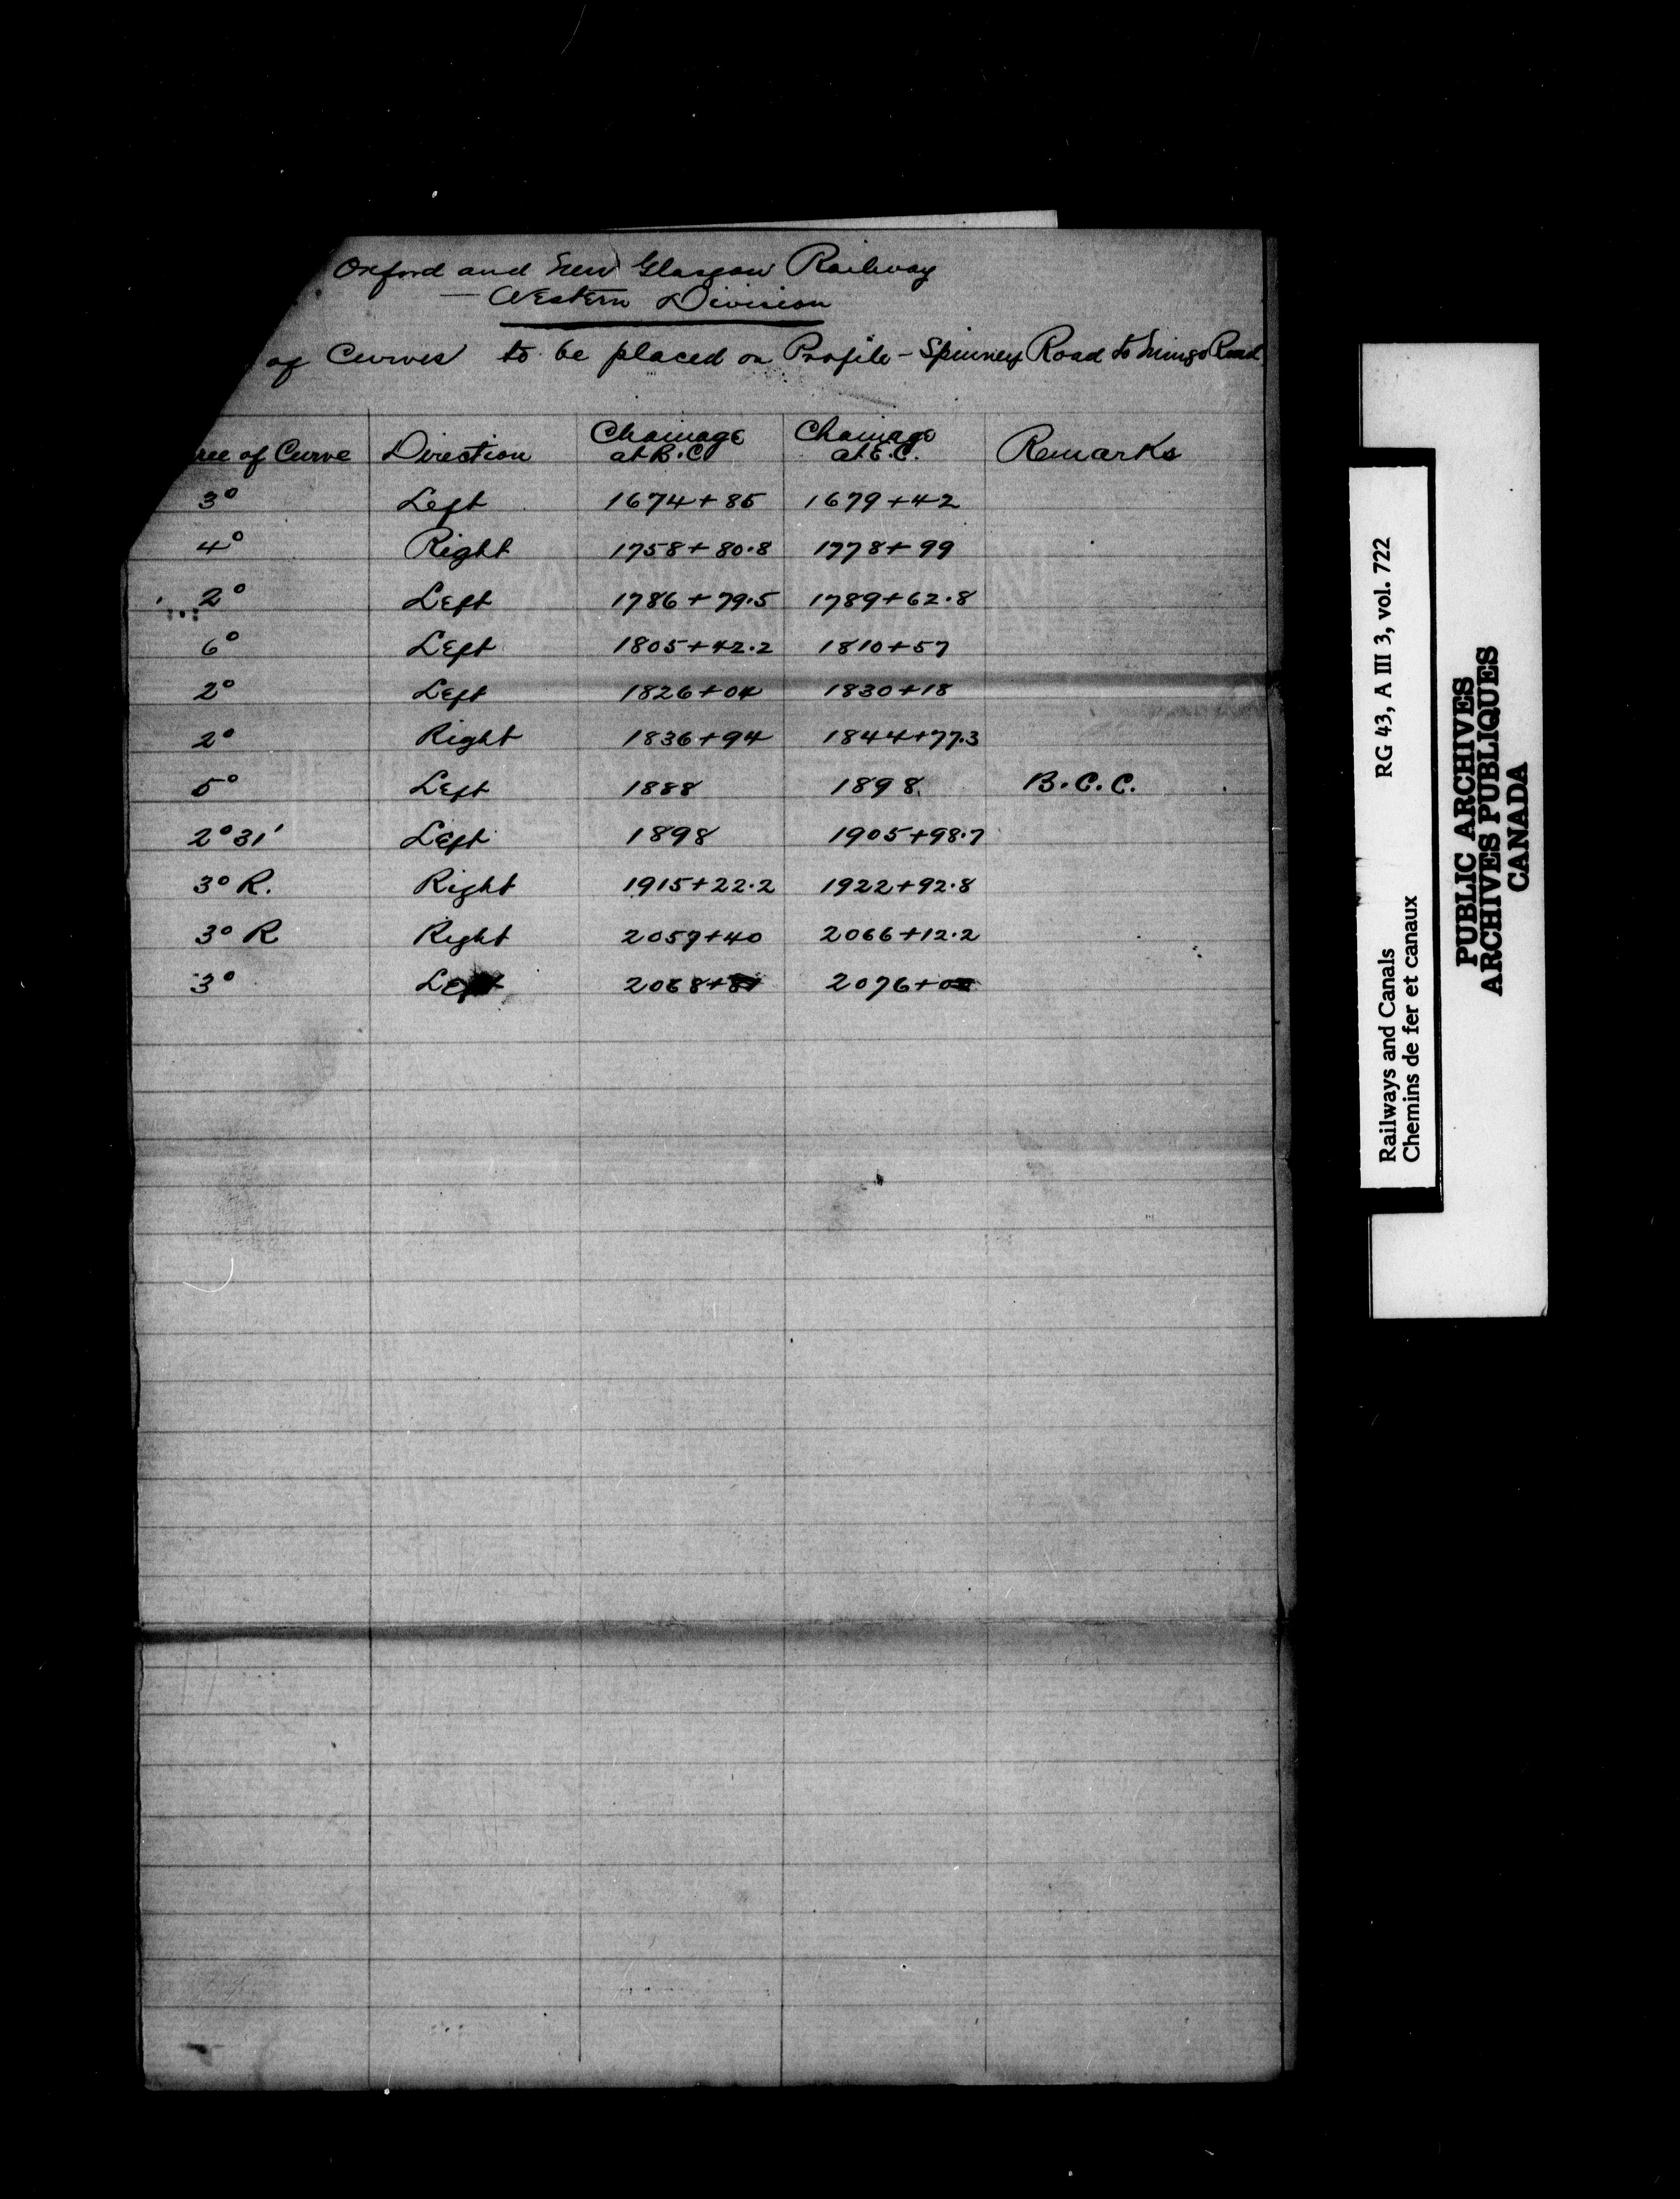 Oxford and New Glasgow Railway
— Western Division
of Curves to be placed on Profile - Spinney Road to Mingo Road
ree of Curve Direction Chainage at B.C. Chainage at E.C. Remarks
3° Left 1674+85 1679+42
4° Right 1758+80.8 1778+99
2° Left 1786+79.5 1789+62.8
6° Left 1805+42.2 1810+57
2° Left 1826+04 1830+18
2° Right 1836+94 1844+77.3
5° Left 1888 1898 B.C.C.
2°31' Left 1898 1905+98.7
3° R. Right 1915+22.2 1922+92.8
3° R Right 2059+40 2066+12.2
3° Left
Railways and Canals RG 43, A III 3, vol. 722
Chemins de fer et canaux
PUBLIC ARCHIVES
ARCHIVES PUBLIQUES
CANADA